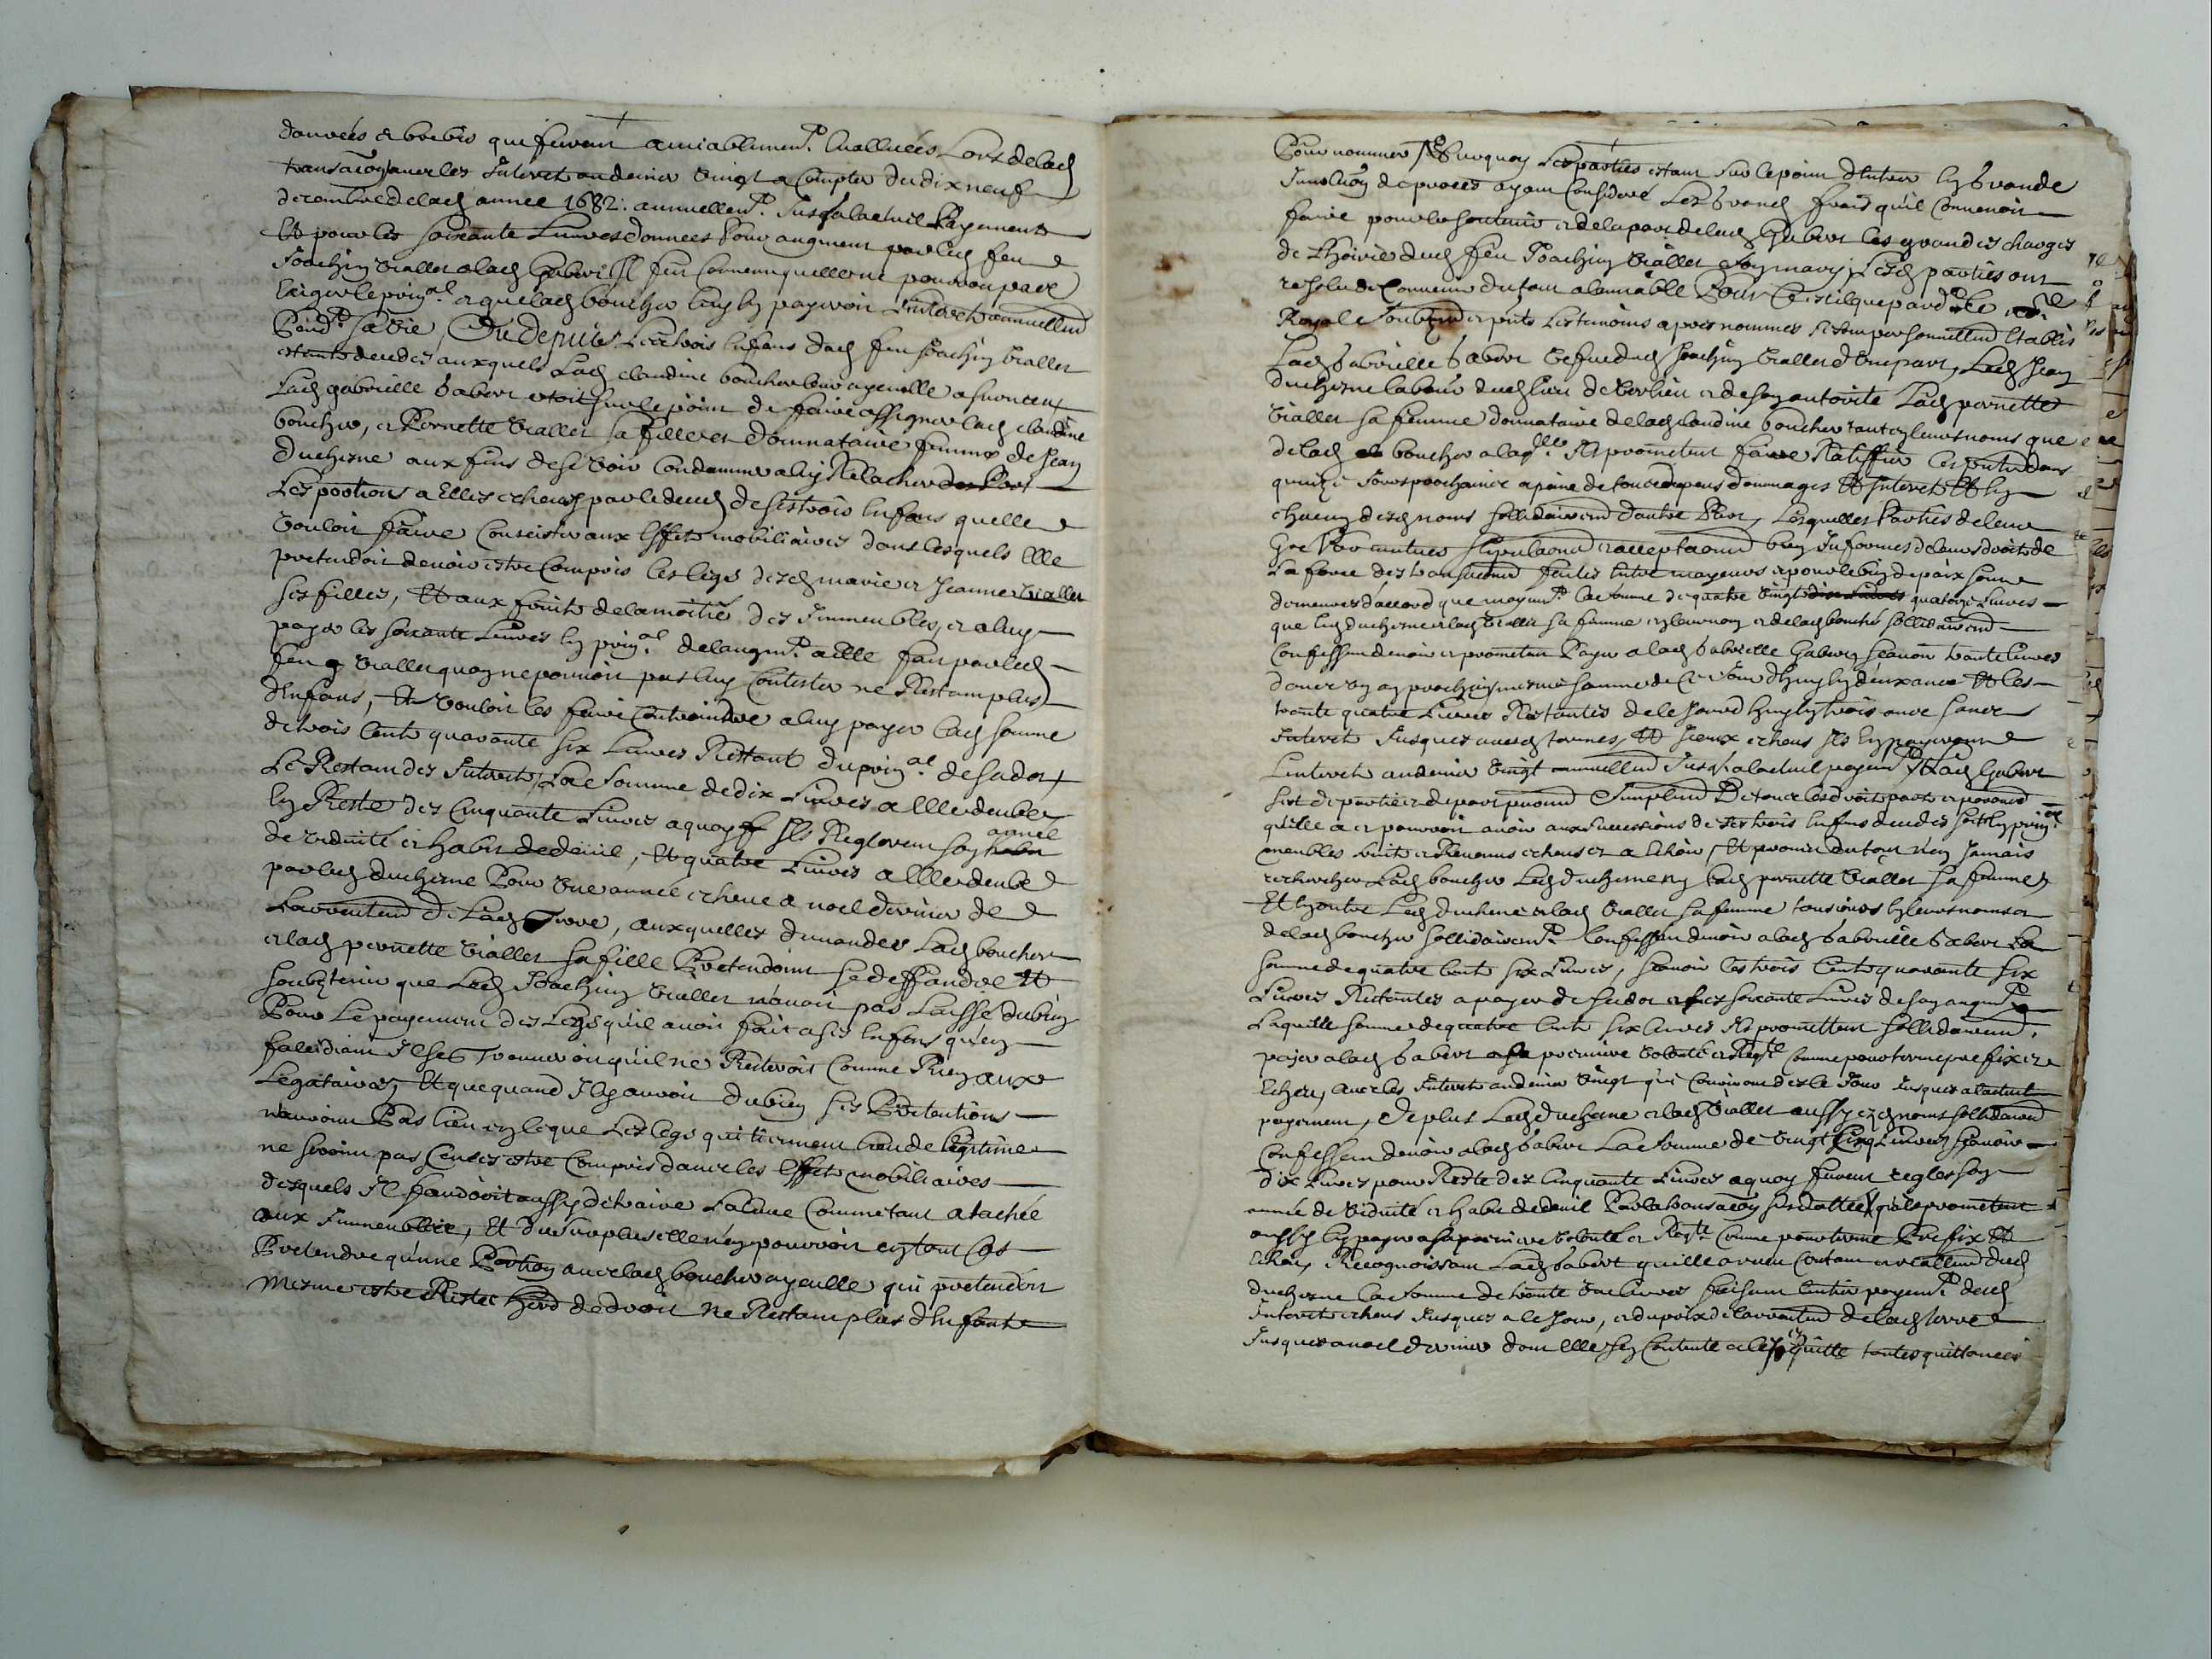 données et brebis qui furent amiablemen.t evalluées Lors de lad
transaction avec les Interet au denier vingt a Compter du dix neuf
decembre de lad année 1682. annuellem.t Jusq a lactuel Payement
Et pour les soixante Livres données Pour augment par led feu
Joachin Viallet a lad Gabert Il fut Convenu quelle ne pourroit pas
Exiger le prin.al et que lad boucher luy en payeroit L'interet annuellemt
Pend.t sa vie, Ou depuis Les trois Enfans dud feu Joachin Viallet
estants decedes auxquels Lad claudine boucher leur ayeulle a
Lad gabrielle Gabert etoit sur le point de faire assigner lad claudine
boucher, et Pernette Viallet sa fille et donnataire femme de Jean
Duchesne aux fins de se voir Condamner a luy Relacher
Les portions a Elles echeues par le deced de ses trois Enfans quelle
vouloit faire Consister aux Effets mobiliaires dans lesquels Elle
pretendoit devoir estre Compris les legs desd marie et Jeanne Viallet
ses filles, Et aux fruits de la moitié des Immeubles, et a luy
payer les soixante Livres en prin.al de laugm.t a elle fait par led
feu Viallet quoy ne pouvoit pas luy Contester ne Restant plus
d'Enfans, Et vouloir les faire Contraindre a luy payer lad somme
de trois Cents quarante six Livres Restant du prin.al de sa dot
Le Restant des Interets, La somme de dix Livres a Elle deube
en Reste des Cinquante Livres a quoy Ils Reglerent son annee
de viduité et habit de deüil, Et quatre Livres a Elle deube
par led duchesne Pour Une année echeue a noel dernier de
Larrentemt de Lad Terre, auxquelles demandes Lad boucher
et lad pernette Viallet sa fille Pretendoint se deffandre Et
soubtenir que Led Joachin Viallet n'avoit pas Laissé du bien
Pour Le payement des Legs quil avoit fait a ses Enfans qu'en
falcidiant Il se Trouveroit qu'il ne Resteroit Comme Rien aux
Legataires, Et que quand Il y auroit du bien ses Pretentions
n'auroint Pas lieu en ce que Les legs qui tiennent lieu de legitime
ne seroint pas Censés estre Compris dans les Effets mobiliaires
desquels Il faudroit aussy distraire Comme tant atachée
aux Immeubles, Et du surplus elle n'en pouvoit en tout Cas
Pretendre qu'une Portion avec lad boucher ayeulle qui pretendoit
mesme estre Restée de droit ne Restant plus d'Enfants
Pour nommer Surquoy Les parties estant sur le point d'Entrer en Grande
Involution de proces ayant Consideré Les Grands frais qu'il Convenoit
faire pour le soutenir et de la part de lad Gabert les grandes charges
de Lhoirie dud feu Joachin Viallet son mary, Lesd parties ont
resolu de Convenir du tout a lamiable Pour Ce est il que pard.t le no.re
Royal soubzné et pnts Les temoins apres nommes se sont personnellemt Etablis
Lad Gabrielle Gabert vefue dud Joachin Viallet d'Une part, Led Jean
Duchesne laboureur dud lieu de et de son autorité Lad pernette
Viallet sa femme donnataire de lad claudine boucher tant en leurs noms que
de lad boucher a laq.lle Ils promettent faire Ratiffier Ces pntes dans
quinze Jours prochains a peine de tous depens dommages Et Interets Et en
chacun desd noms sollidairemt d'autre Part, Lesquelles Parties de leur
Gré Par mutues stipulaons et acceptaons bien Informes de leurs droits de
La force des transactions faites entre mayeurs et pour le bien de paix sont
demeurés d'accord que moyen.t la somme de quatre vingt quatorze Livres
que led duchesne et lad Viallet sa femme en leur nom et de lad boucher sollidairemt
Confessent devoir et promettent Payer a lad Gabrielle Gabert, scavoir trante livres
mesme somme de Ce Jour d'huy en deux ans Et les
trante quatre Livres Restantes de Ce Jourd'huy en trois ans sans
Interets Jusques auxd termes, Et Iceux echeus Ils en payeront
L'interet au denier vingt annuellemt Jusq a lactuel payem.t Lad Gabert
s'est departie et depart purement Simplemt De tous les droits parts et portions
qu'elle a et pourroit avoir aux successions de ses trois Enfans decedes soit en prin.al
meubles fruits et Revenus echeus et a Echoir, Et promet du tout n'en Jamais
rechercher Lad boucher Led duchesne ny lad pernette Viallet sa femme
Et en outre Led duchesne et lad Viallet sa femme tousiours en leurs noms et
de lad boucher sollidairem.t Confessent devoir a lad Gabrielle Gabert La
somme de quatre Cents six Livres, scavoir les trois Cents quarante six
Livres Restantes a payer de sa dot et les soixante Livres de son augm.t
Laquelle somme de quatre Cents six livres Ils promettent sollidairemt
payer a lad Gabert a sa premiere volonté et Reqte comme pour terme prefix et
Echeu, avec les Interets au denier vingt qui Couriront des le Jour Jusques a lactuel
payement, De plus Led duchesne et lad Viallet aussy ezd noms sollidairemt
Confessent devoir a lad Gabert La somme de vingt Cinq Livres scavoir
dix Livres pour Reste des Cinquante Livres a quoy furent regles son
année de viduité et habit de deuil Par la transaction sus dattée qu'ils promettent
aussy luy payer a sa premiere volonté et Reqte Comme pour terme Prefix Et
Echeu, Recognoissant Lad Gabert qu'elle a receu Contant et reallemt dud
duchesne la somme de trante une livres faisant lentier payem.t desd
Interets echeus Jusques a Ce Jour, et du prix de larrentemt de lad terre
Jusques a noel dernier dont Elle s'en Contente et les en quitte toutes quittances